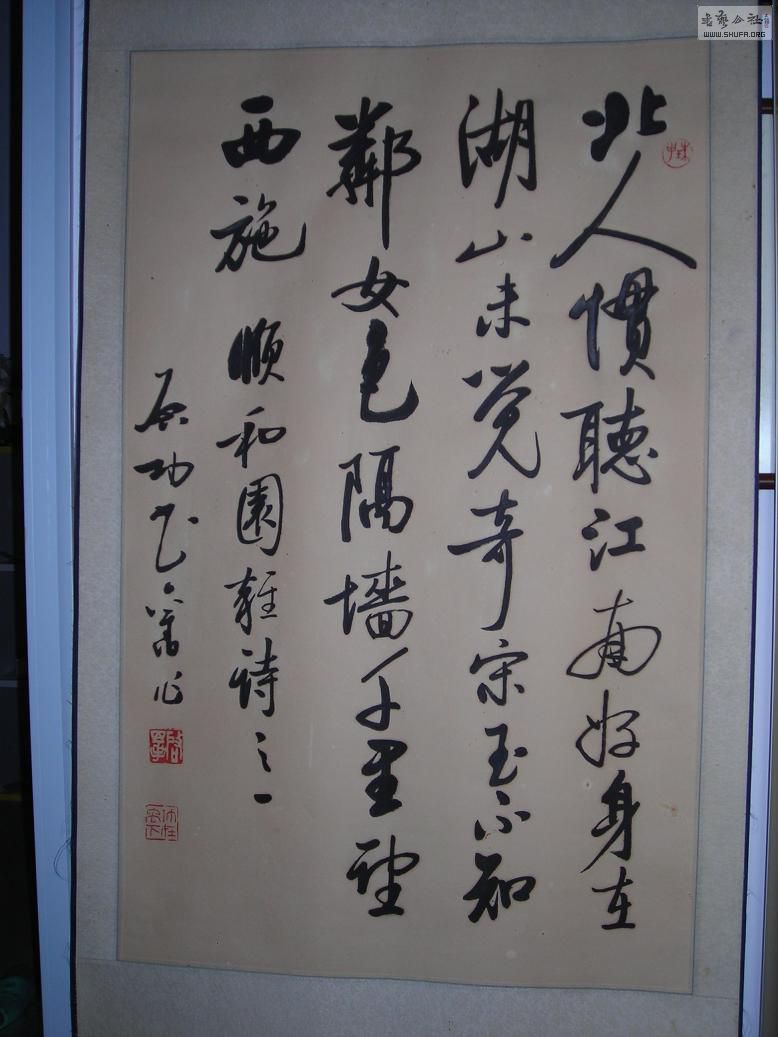 北人慣聽江南好身在
湖山未覺奇宋玉不知
鄰女色隔墻千里望
西施 順和園雜詩之一
啟功書舊作
WWW.SHUFA.ORG